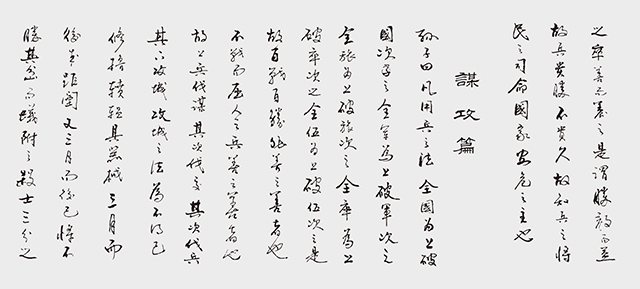 之卒善而養之是謂勝敵而益
故兵貴勝不貴久故知兵之將
民之司命國家安危之主也
謀攻篇
孫子曰凡用兵之法全國為上破
國次之全軍為上破軍次之
全旅為上破旅次之全卒為上
破卒次之全伍為上破伍次之是
故百戰百勝非善之善者也
不戰而屈人之兵善之善者也
故上兵伐謀其次伐交其次伐兵
其下攻城攻城之法為不得已
修櫓轒轀具器械三月而
後成距闉又三月而後已將不
勝其忿而蟻附之殺士三分之